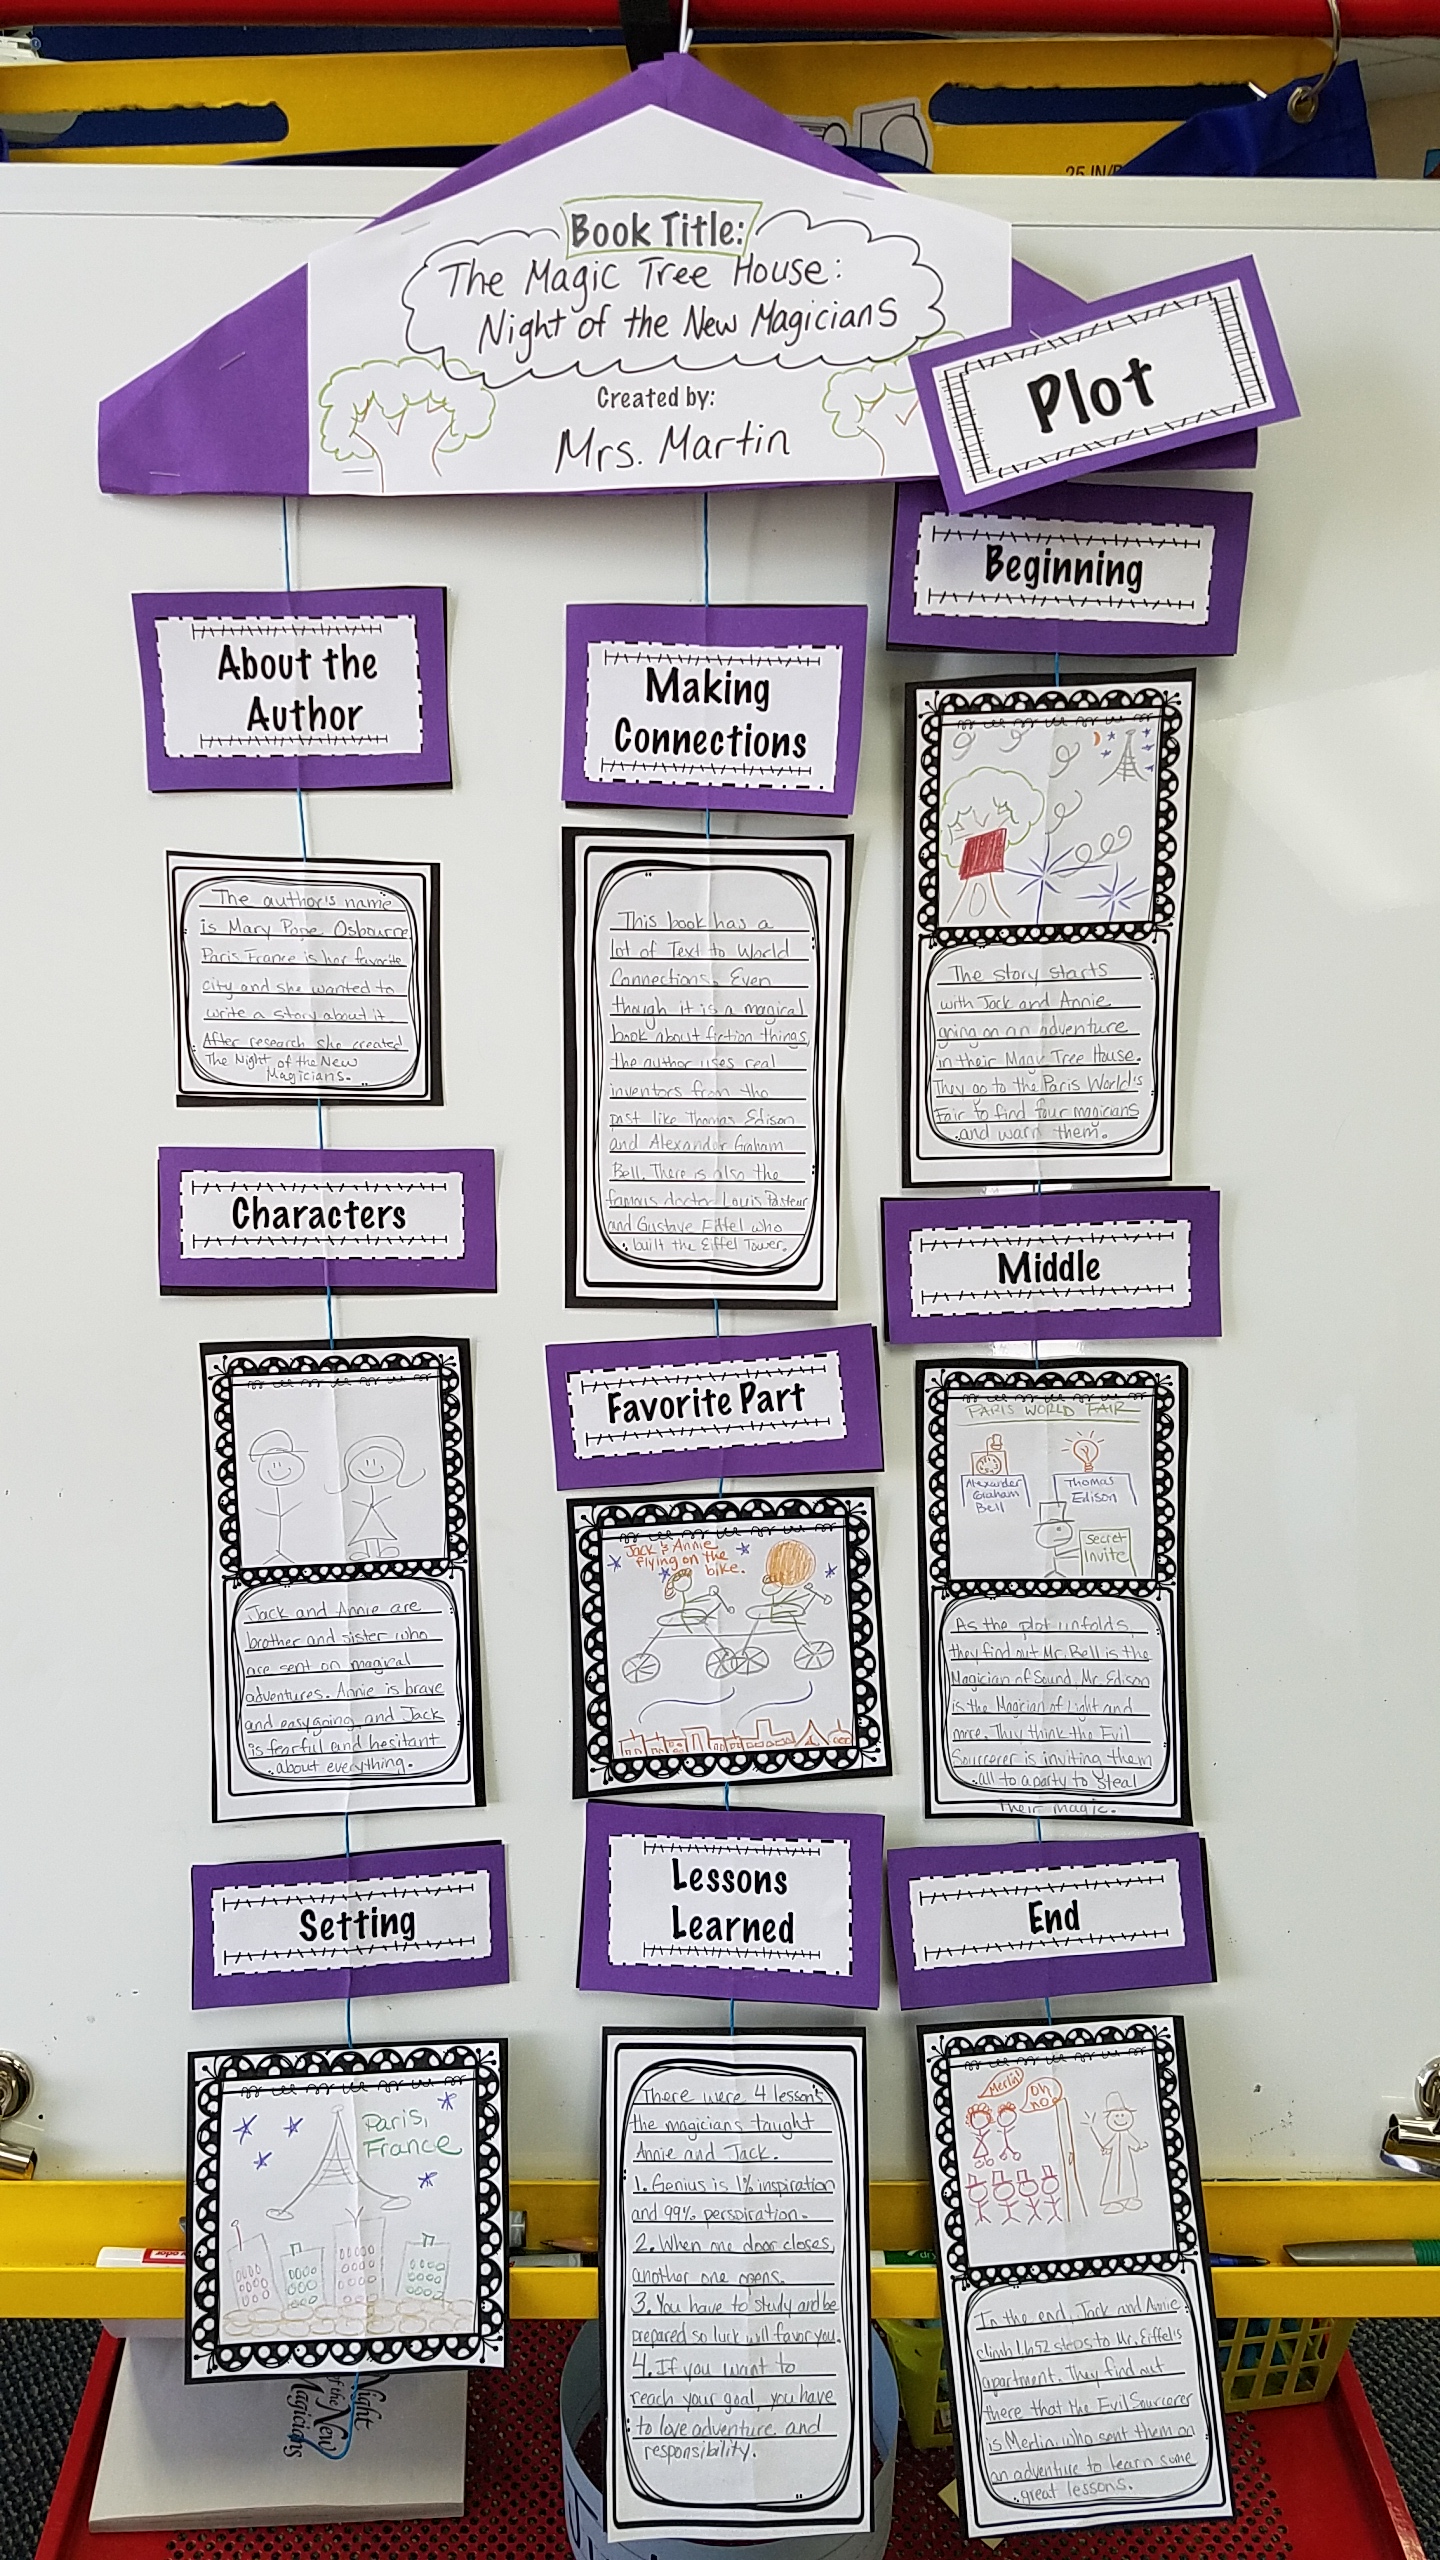 25 IN/
Book Title:
The Magic Tree House:
Night of the New Magicians
Created by:
Mrs. Martin
Plot
About the
Author
The author's name
is Mary Pope Osbourne
Paris France is her favorite
city and she wanted to
write a story about it.
After research she created
The Night of the New
Magicians.
Characters
Jack and Annie are
brother and sister who
are sent on magical
adventures. Annie is brave
and easygoing and Jack
is fearful and hesitant
about everything.
Setting
Paris,
France
Making
Connections
This book has a
lot of Text to World
Connections. Even
though it is a magical
book about fiction things,
the author uses real
inventors from the
past like Thomas Edison
and Alexander Graham
Bell. There is also the
famous doctor Louis Pasteur
and Gustave Eiffel who
built the Eiffel Tower.
Favorite Part
Jack & Annie
flying on the
bike.
Lessons
Learned
There were 4 lessons
the magicians taught
Annie and Jack.
1. Genius is 1% inspiration
and 99% perspiration.
2. When one door closes,
another one opens.
3. You have to study and be
prepared so luck will favor you.
4. If you want to
reach your goal, you have
to love adventure and
responsibility.
Beginning
The story starts
with Jack and Annie
going on an adventure
in their Magic Tree House.
They go to the Paris World's
Fair to find four magicians
and warn them.
Middle
PARIS WORLD FAIR
Alexander
Graham
Bell
Thomas
Edison
Secret
Invite
As the plot unfolds,
they find out Mr. Bell is the
Magician of Sound, Mr. Edison
is the Magician of Light and
more. They think the Evil
Sourcerer is inviting them
all to a party to steal
their magic.
End
Merlin
Oh
no
In the end, Jack and Annie
climb 1,652 steps to Mr. Eiffel's
apartment. They find out
there that the Evil Sourcerer
is Merlin, who sent them on
an adventure to learn some
great lessons.
Night
of the New
Magicians